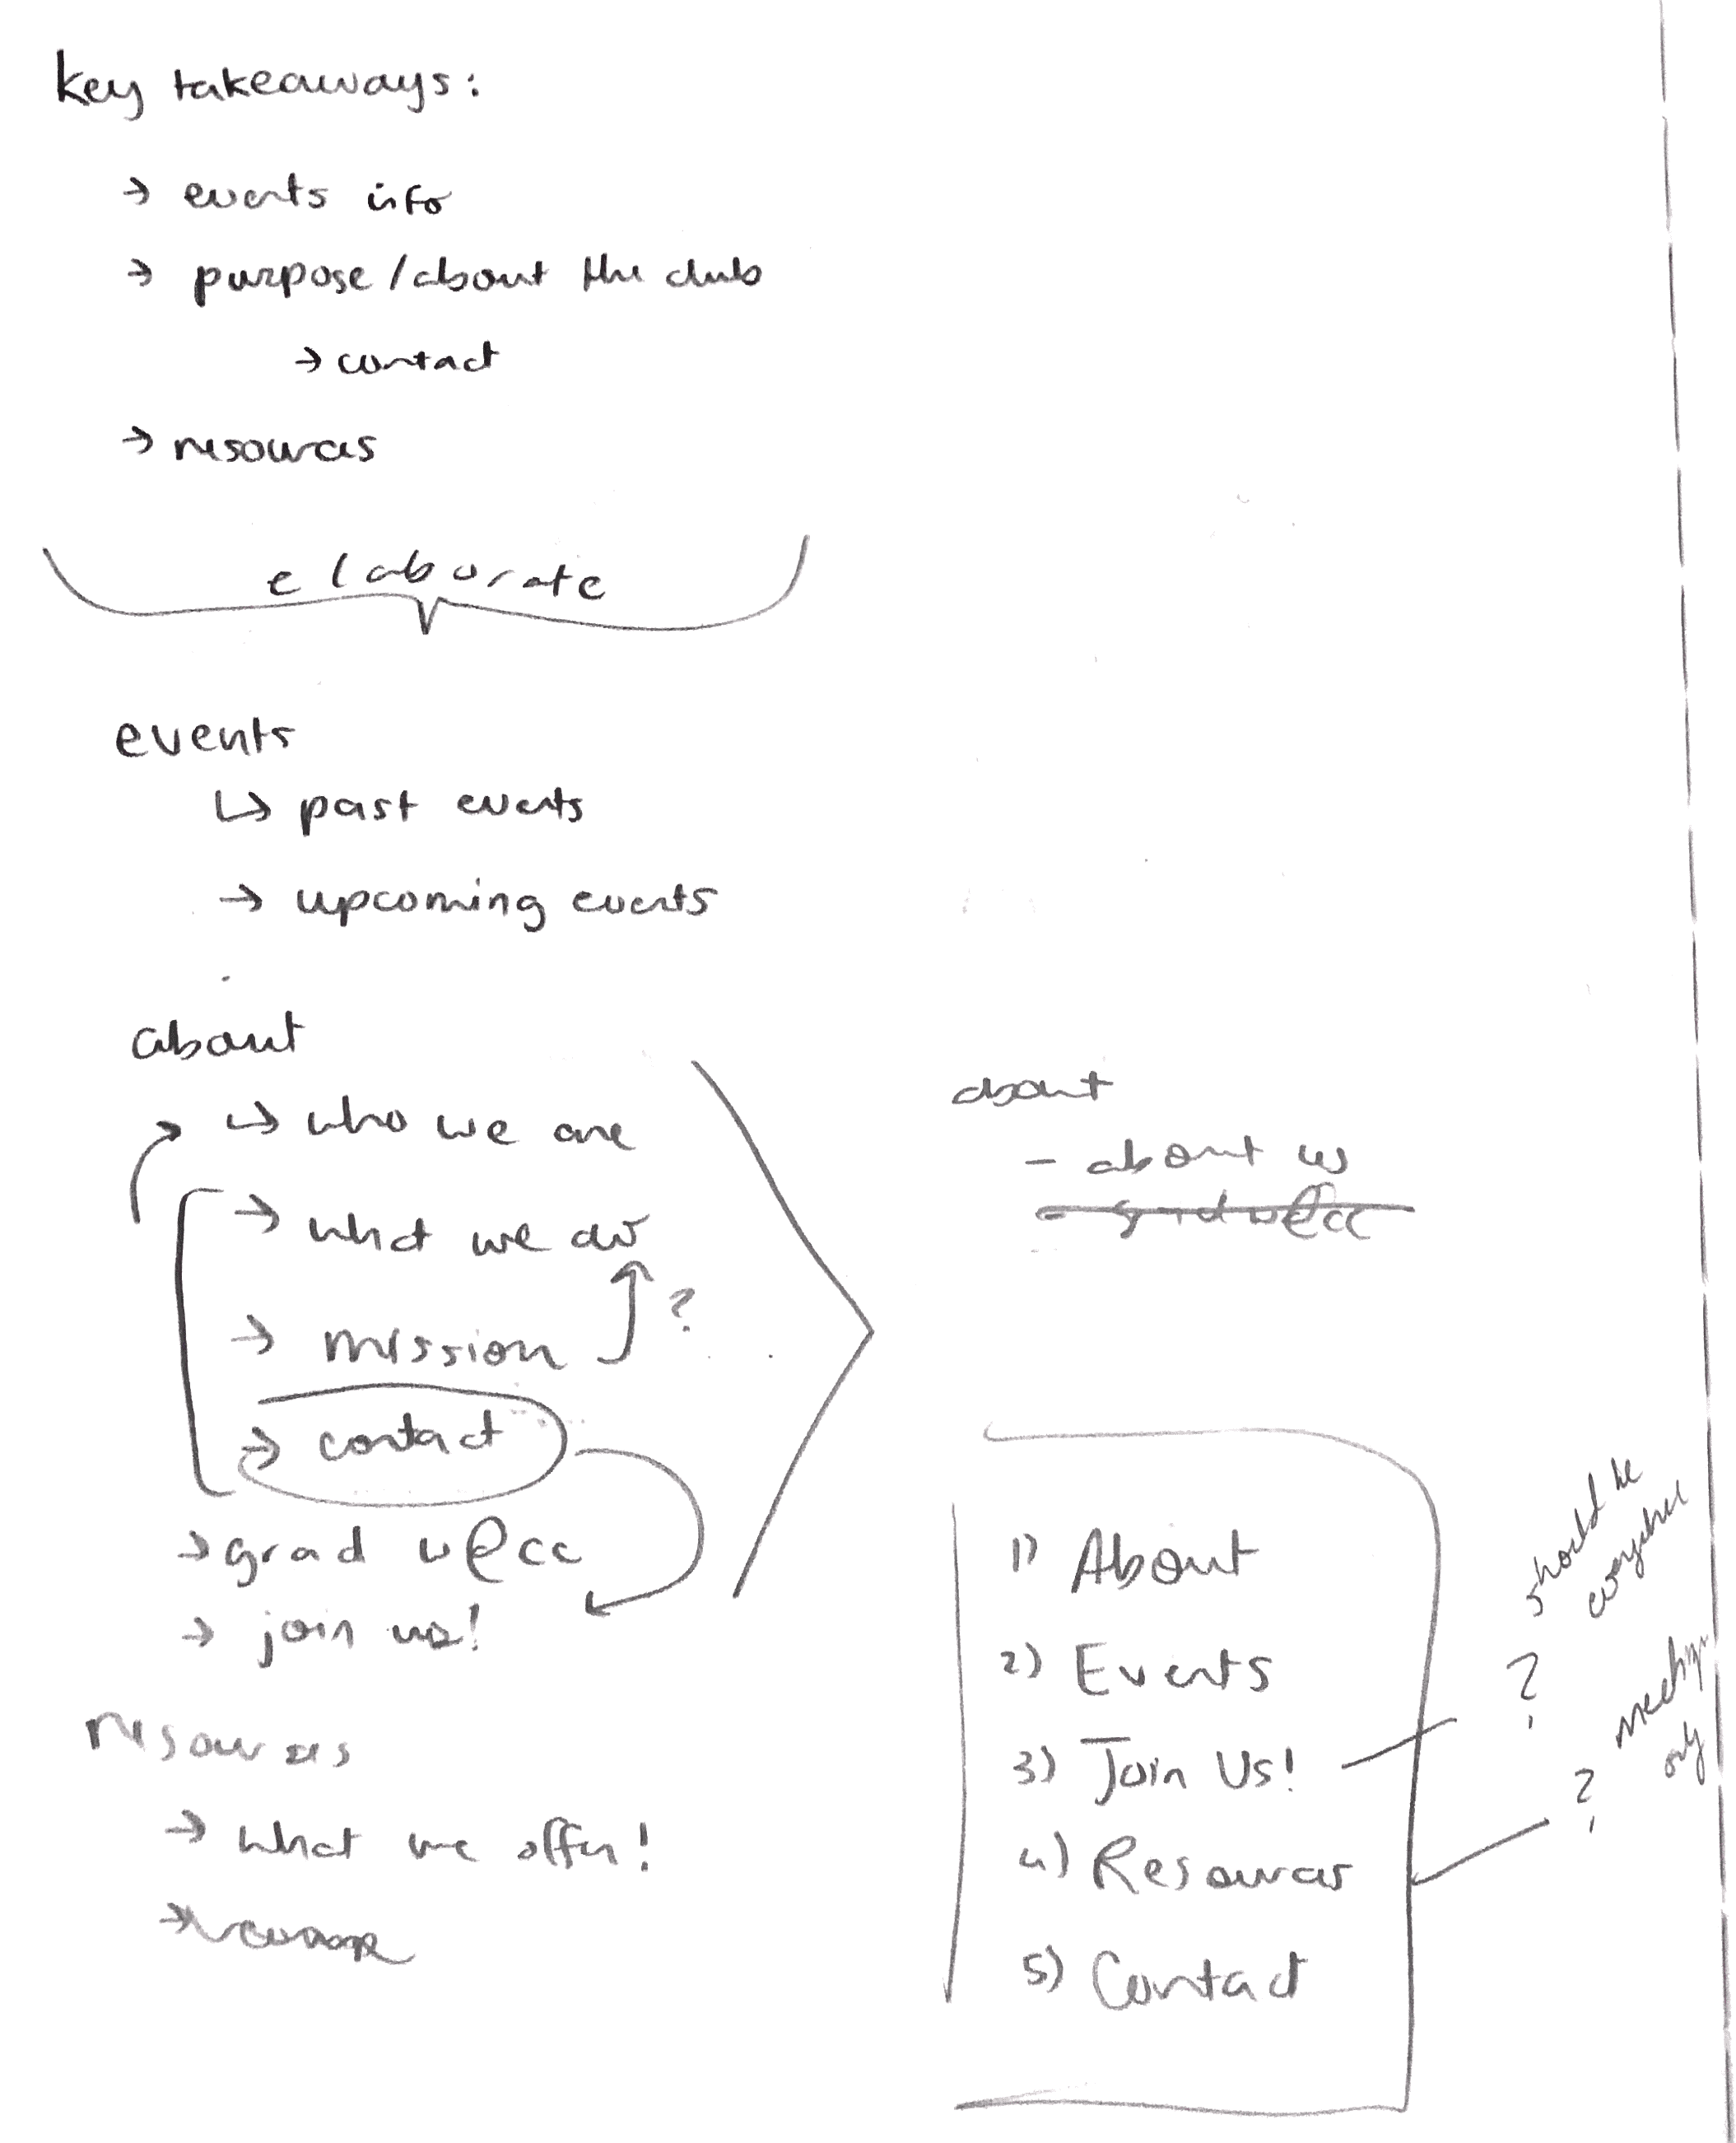 key takeaways:
→ events info
→ purpose / about the club
→ contact
→ resources
elaborate
events
↳ past events
→ upcoming events
about
↳ who we are
→ what we do
→ mission ?
→ contact
→ grad w@cc
→ join us!
resources
→ what we offer!
→
about
- about us
- grad w@cc
1) About
2) Events
3) Join Us!
4) Resources
5) Contact
should be
?
meetings
only
?